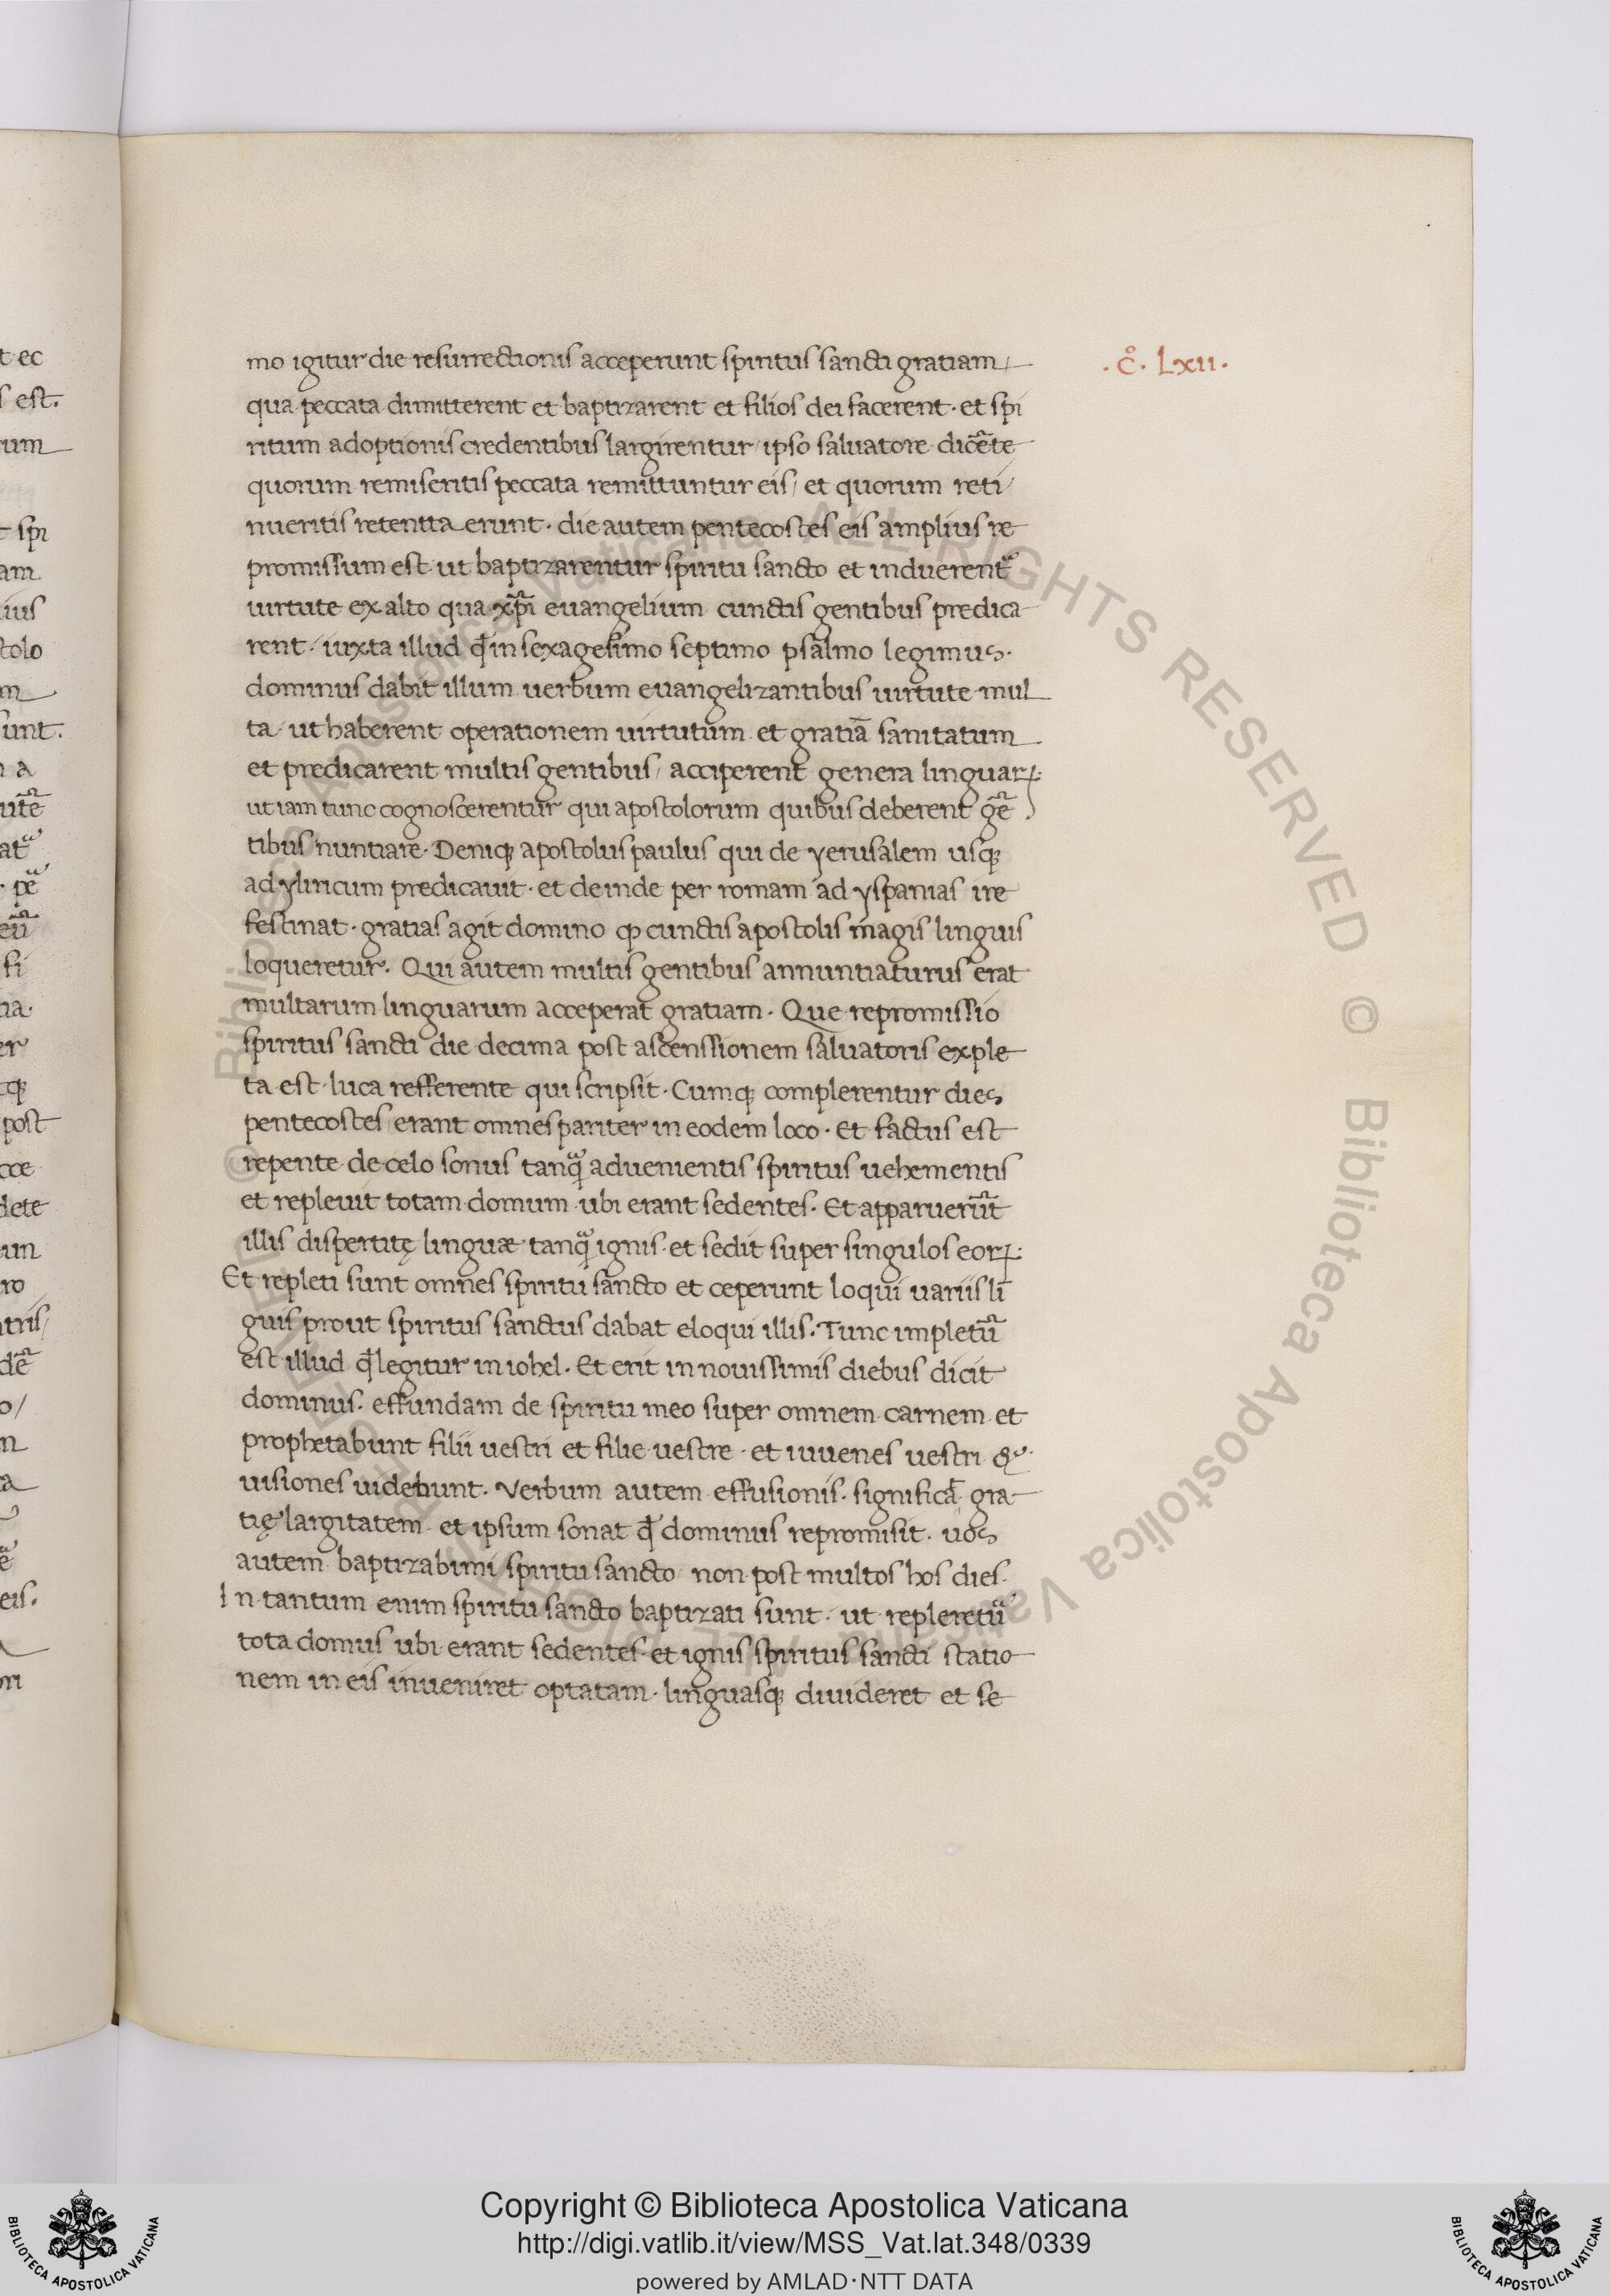 mo igitur die resurrectionis acceperunt spiritus sancti gratiam
qua peccata dimitterent et baptizarent et filios dei facerent · et spi
ritum adoptionis credentibus largirentur / ipso saluatore dicēte
quorum remiseritis peccata remittuntur eis / et quorum reti
nueritis retentta erunt · die autem pentecostes eis amplius re
promissum est ut baptizarentur spiritu sancto et induerent᷑
uirtute ex alto qua xp̄i euangelium cunctis gentibus predica
rent / iuxta illud qđ in sexagesimo septimo psalmo legimus ·
dominus dabit illum uerbum euangelizantibus uirtute mul
ta · ut haberent operationem uirtutum et gratiā sanitatum
et predicarent multis gentibus / acciperent genera linguaꝝ ·
ut iam tunc cognoscerentur qui apostolorum quibus deberent gē
tibus nuntiare · Deniqꝫ apostolus paulus qui de yerusalem usqꝫ
ad yliricum predicauit · et deinde per romam ad yspanias ire
festinat · gratias agit domino ꝙ cunctis apostolis magis linguis
loqueretur · Qui autem multis gentibus annuntiaturus erat
multarum linguarum acceperat gratiam · Que repromissio
spiritus sancti die decima post ascenssionem saluatoris exple
ta est luca refferente qui scripsit · Cumqꝫ complerentur dies
pentecostes erant omnes pariter in eodem loco · Et factus est
repente de celo sonus tanqᷓ aduenientis spiritus uehementis
et repleuit totam domum ubi erant sedentes · Et apparuerūt
illis dispertitę linguæ tanqᷓ ignis · et sedit super singulos eoꝝ ·
Et repleti sunt omnes spiritu sancto et ceperunt loqui uariis lī
guis prout spiritus sanctus dabat eloqui illis · Tunc impletū
est illud qđ legitur in iohel · Et erit in nouissimis diebus dicit
dominus · effundam de spiritu meo super omnem carnem et
prophetabunt filii uestri et filie uestre · et iuuenes uestri
uisiones uidebunt · Verbum autem effusionis · significā gra
tię largitatem · et ipsum sonat qđ dominus repromisit · uos
autem baptizabimi spiritu sancto non post multos hos dies ·
In tantum enim spiritu sancto baptizati sunt · ut repleret᷑
tota domus ubi erant sedentes · et ignis spiritus sancti statio
nem in eis inueniret optatam · linguasqꝫ diuideret et se
· c̊ · Lxii ·
Copyright © Biblioteca Apostolica Vaticana
http://digi.vatlib.it/view/MSS_Vat.lat.348/0339
powered by AMLAD·NTT DATA
BIBLIOTECA APOSTOLICA VATICANA
BIBLIOTECA APOSTOLICA VATICANA